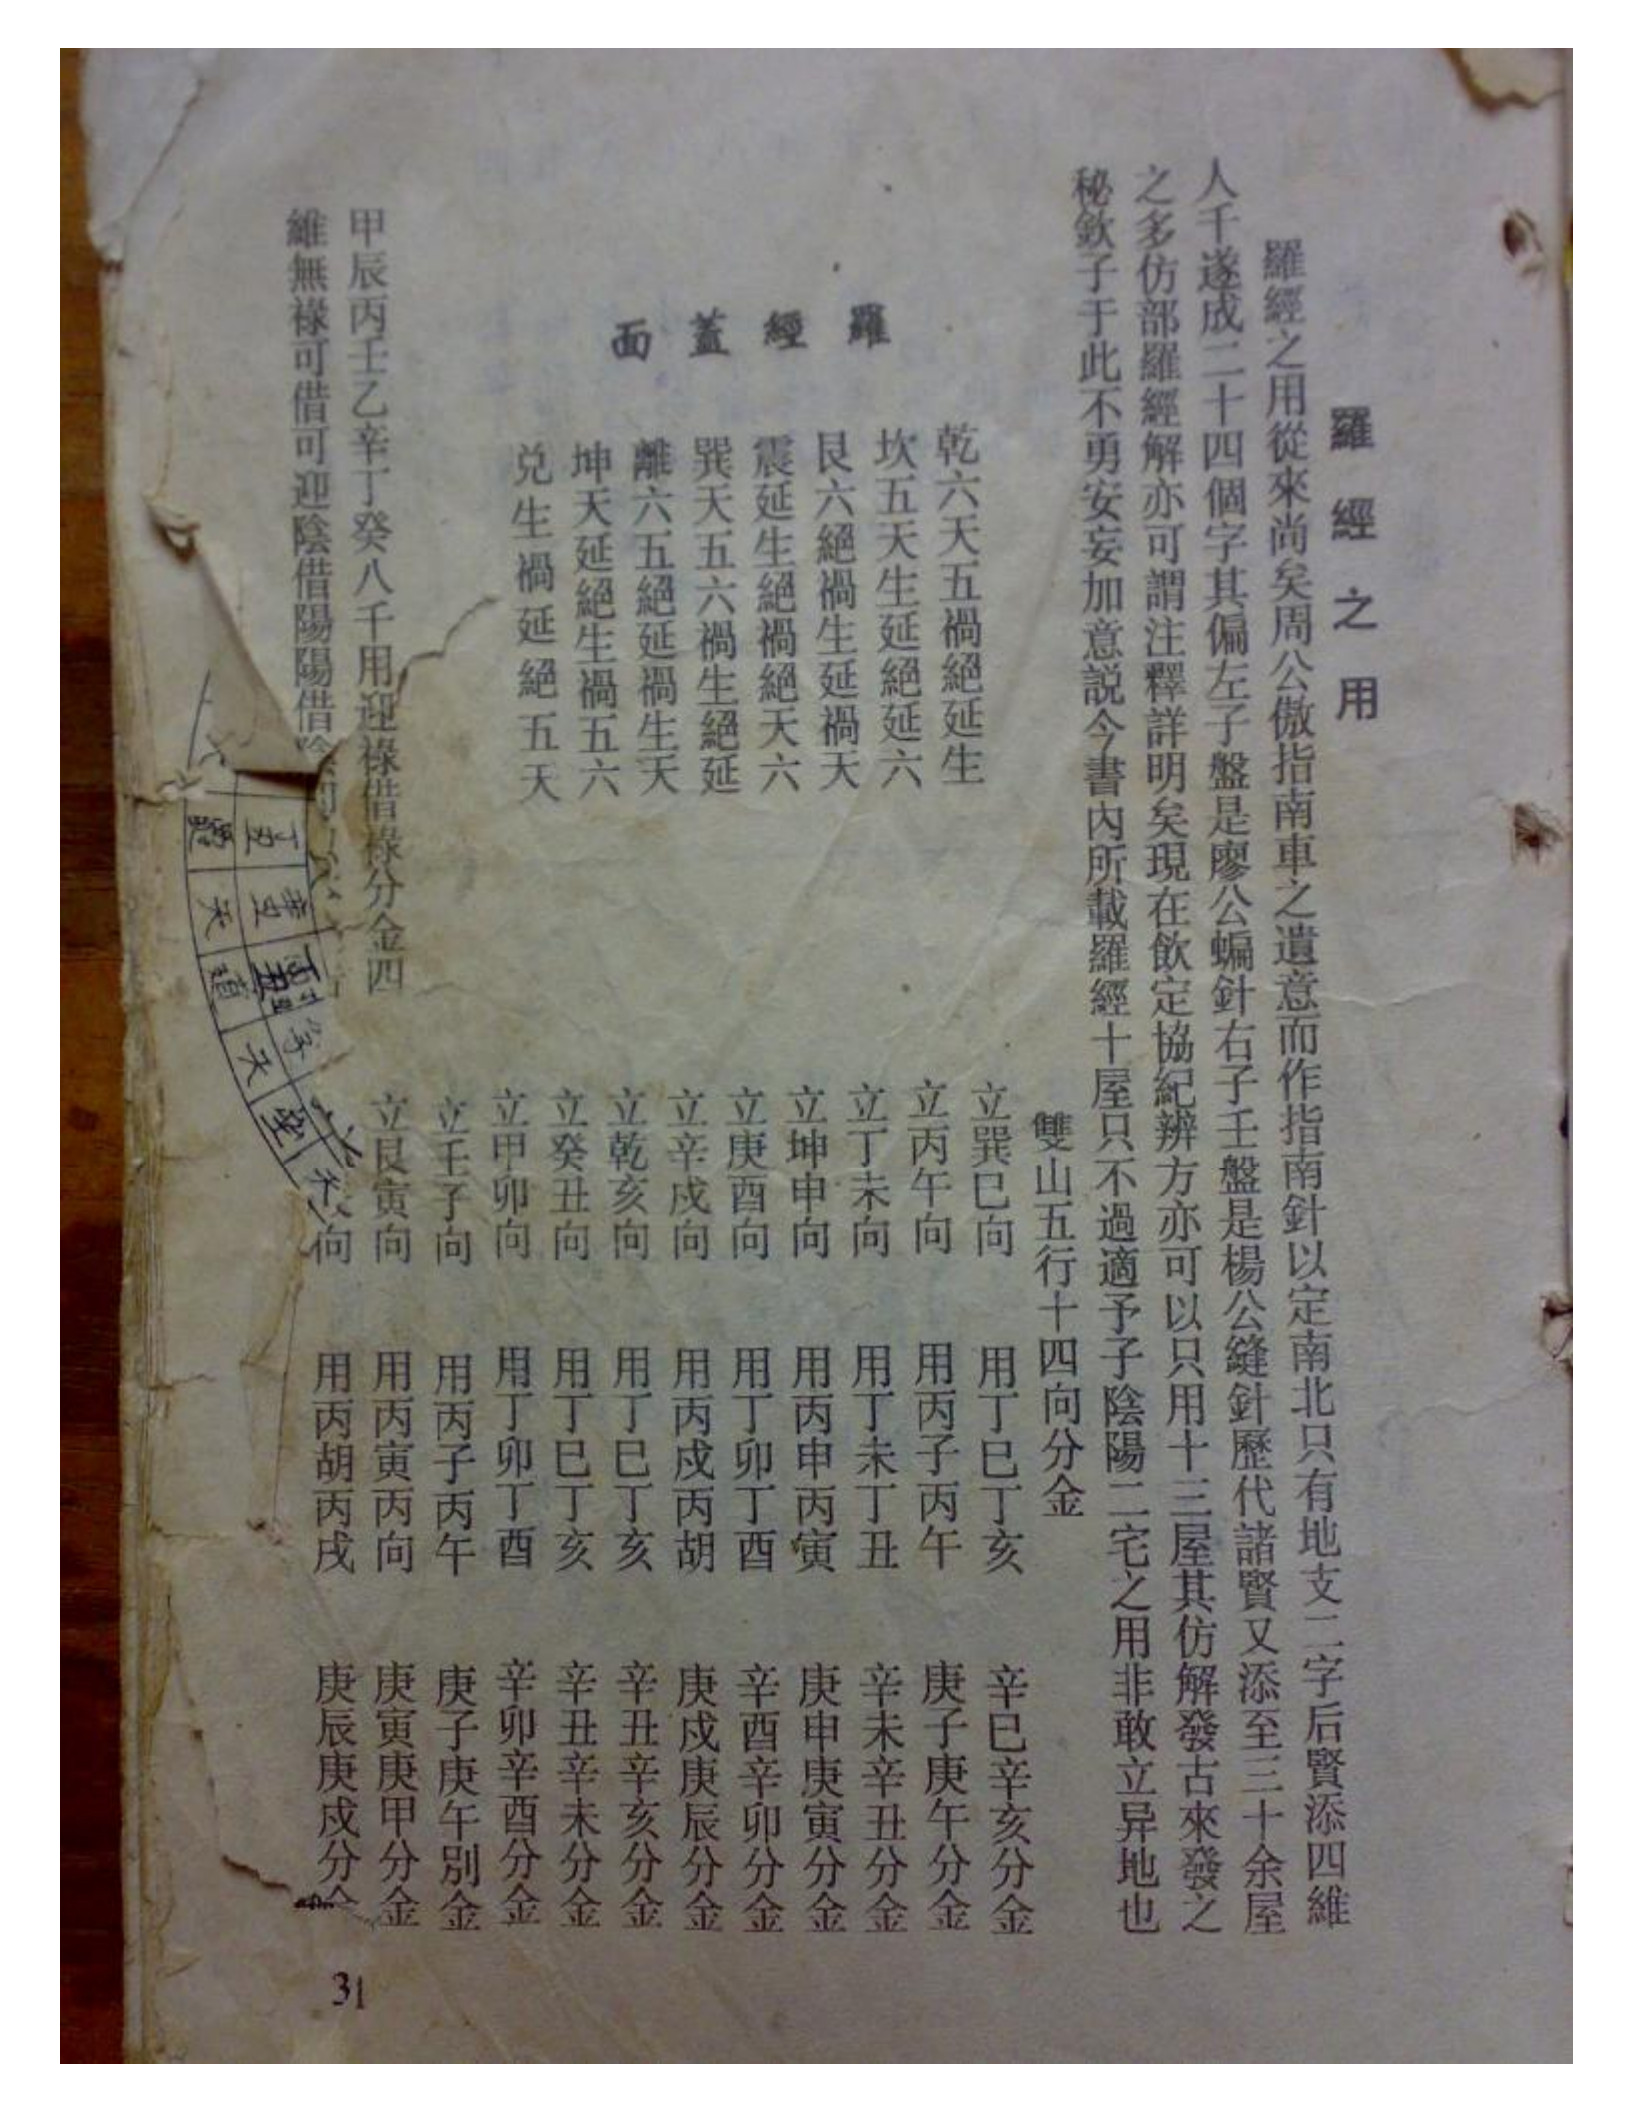 羅經之用
羅經之用從來尚矣周公傲指南車之遺意而作指南針以定南北只有地支二字后賢添四維
人千遂成二十四個字其偏左子盤是廖公蝙針右子壬盤是楊公縫針歷代諸賢又添至三十余屋
之多仿部羅經解亦可謂注釋詳明矣現在飲定協紀辨方亦可以只用十三屋其仿解發古來發之
秘欽子于此不勇安妄加意説今書內所載羅經十屋只不過適予子陰陽二宅之用非敢立异地也
羅經蓋面
乾六天五禍絕延生
坎五天生延絕延六
艮六絕禍生延禍天
震延生絕禍絕天六
巽天五六禍生絕延
離六五絕延禍生天
坤天延絕生禍五六
兑生禍延絕五天
雙山五行十四向分金
立巽巳向 用丁巳丁亥 辛巳辛亥分金
立丙午向 用丙子丙午 庚子庚午分金
立丁未向 用丁未丁丑 辛未辛丑分金
立坤申向 用丙申丙寅 庚申庚寅分金
立庚酉向 用丁卯丁酉 辛酉辛卯分金
立辛戍向 用丙戍丙胡 庚戍庚辰分金
立乾亥向 用丁巳丁亥 辛丑辛亥分金
立癸丑向 用丁巳丁亥 辛丑辛未分金
立甲卯向 用丁卯丁酉 辛卯辛酉分金
立壬子向 用丙子丙午 庚子庚午別金
立艮寅向 用丙寅丙向 庚寅庚甲分金
向 用丙胡丙戌 庚辰庚戍分金
甲辰丙壬乙辛丁癸八千用迎祿借祿分金四
維無祿可借可迎陰借陽陽借
丁丑 辛丑
天 天
31